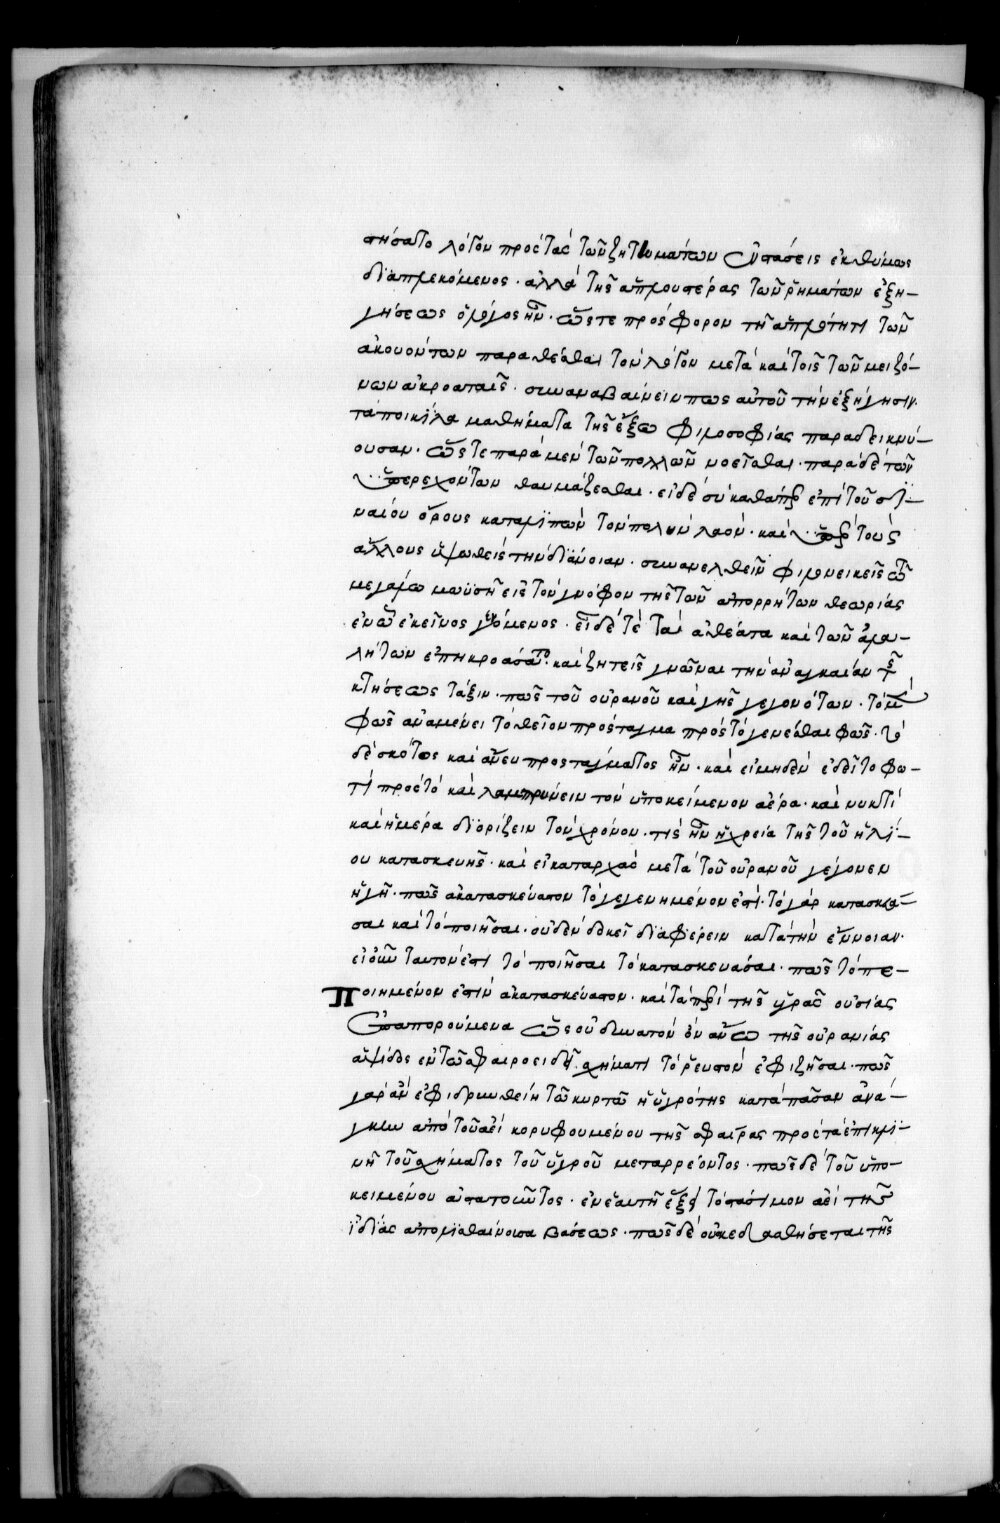 στήσατο λόγον πρὸς τὰς τῶν ζητημάτων ἐνστάσεις ἐκθύμως
διαπλεκόμενος· ἀλλὰ τῆς ἁπλουστέρας τῶν ῥημάτων ἐξη-
γήσεως ὅλος ἦν· ὥστε πρόσφορον τῇ ἁπλότητι τῶν
ἀκουόντων παραθέσθαι τὸν λόγον μετὰ καὶ τοῖς τῶν μειζό-
νων ἀκροαταῖς· συναναβαίνειν πως αὐτοῦ τὴν ἐξήγησιν
τὰ ποικίλα μαθήματα τῆς ἔξω φιλοσοφίας παραδεικνύ-
ουσαν· ὥστε παρὰ μὲν τῶν πολλῶν νοεῖσθαι· παρὰ δὲ τῶν
ὑπερεχόντων θαυμάζεσθαι· εἰ δὲ σὺ καθάπερ ἐπὶ τοῦ σι-
ναίου ὄρους καταλιπὼν τὸν πολὺν λαὸν· καὶ ὑπὲρ τοὺς
ἄλλους ὑψωθεὶς τὴν διάνοιαν· συνανελθεῖν φιλονεικεῖς τῷ
μεγάλῳ μωϋσῇ εἰς τὸν γνόφον τῆς τῶν ἀπορρήτων θεωρίας
ἐν ᾧ ἐκεῖνος γενόμενος· εἶδέ τε τὰ ἀθέατα καὶ τῶν ἀλα-
λήτων ἐπηκροάσατο· καὶ ζητεῖς γνῶναι τὴν ἀναγκαίαν τῆς
κτήσεως τάξιν· πῶς τοῦ οὐρανοῦ καὶ γῆς γεγονότων· τὸ μὲν
φῶς ἀναμένει τὸ θεῖον πρόσταγμα πρὸς τὸ γενέσθαι φῶς· τὸ
δὲ σκότος καὶ ἄνευ προστάγματος ἦν· καὶ εἰ μηδὲν ἐδεῖτο φω-
τὶ πρὸς τὸ καὶ λαμπρύνειν τὸν ὑποκείμενον ἀέρα· καὶ νυκτὶ
καὶ ἡμέρα διορίζειν τὸν χρόνον· τίς ἦν ἡ χρεία τῆς τοῦ ἡλί-
ου κατασκευῆς· καὶ εἰ καταρχὰς μετὰ τοῦ οὐρανοῦ γέγονεν
ἡ γῆ· πῶς ἀκατασκεύαστον τὸ γεγενημένον ἐστί· τὸ γὰρ κατασκευά-
σαι καὶ τὸ ποιῆσαι· οὐδὲν δοκεῖ διαφέρειν κατὰ τὴν ἔννοιαν·
εἰ οὖν ταυτόν ἐστι τὸ ποιῆσαι τὸ κατασκευάσαι· πῶς τὸ πε-
ποιημένον ἐστὶν ἀκατασκεύαστον· καὶ τὰ περὶ τῆς ὑγρᾶς οὐσίας
ἐπαπορούμενα ὡς οὐ δυνατὸν ὂν ἄνω τῆς οὐρανίας
ἁψίδος ἐν τῷ σφαιροειδεῖ σχήματι τὸ ῥευστὸν ἐφιζῆσαι· πῶς
γὰρ ἂν ἐφιδρυνθείη τῷ κυρτῷ ἡ ὑγρότης κατὰ πᾶσαν ἀνά-
γκην ἀπὸ τοῦ ἀεὶ κορυφουμένου τῆς σφαίρας πρὸς τὰ ἐπικλι-
νῆ τοῦ σχήματος τοῦ ὑγροῦ μεταρρέοντος· πῶς δὲ τοῦ ὑπο-
κειμένου ἀστατοῦντος· ἐν ἑαυτῇ ἕξει τὸ στάσιμον ἀεὶ τῆς
ἰδίας ἀπολισθαίνουσα βάσεως· πῶς δὲ οὐκ ἐδιχασθήσεται τῆς